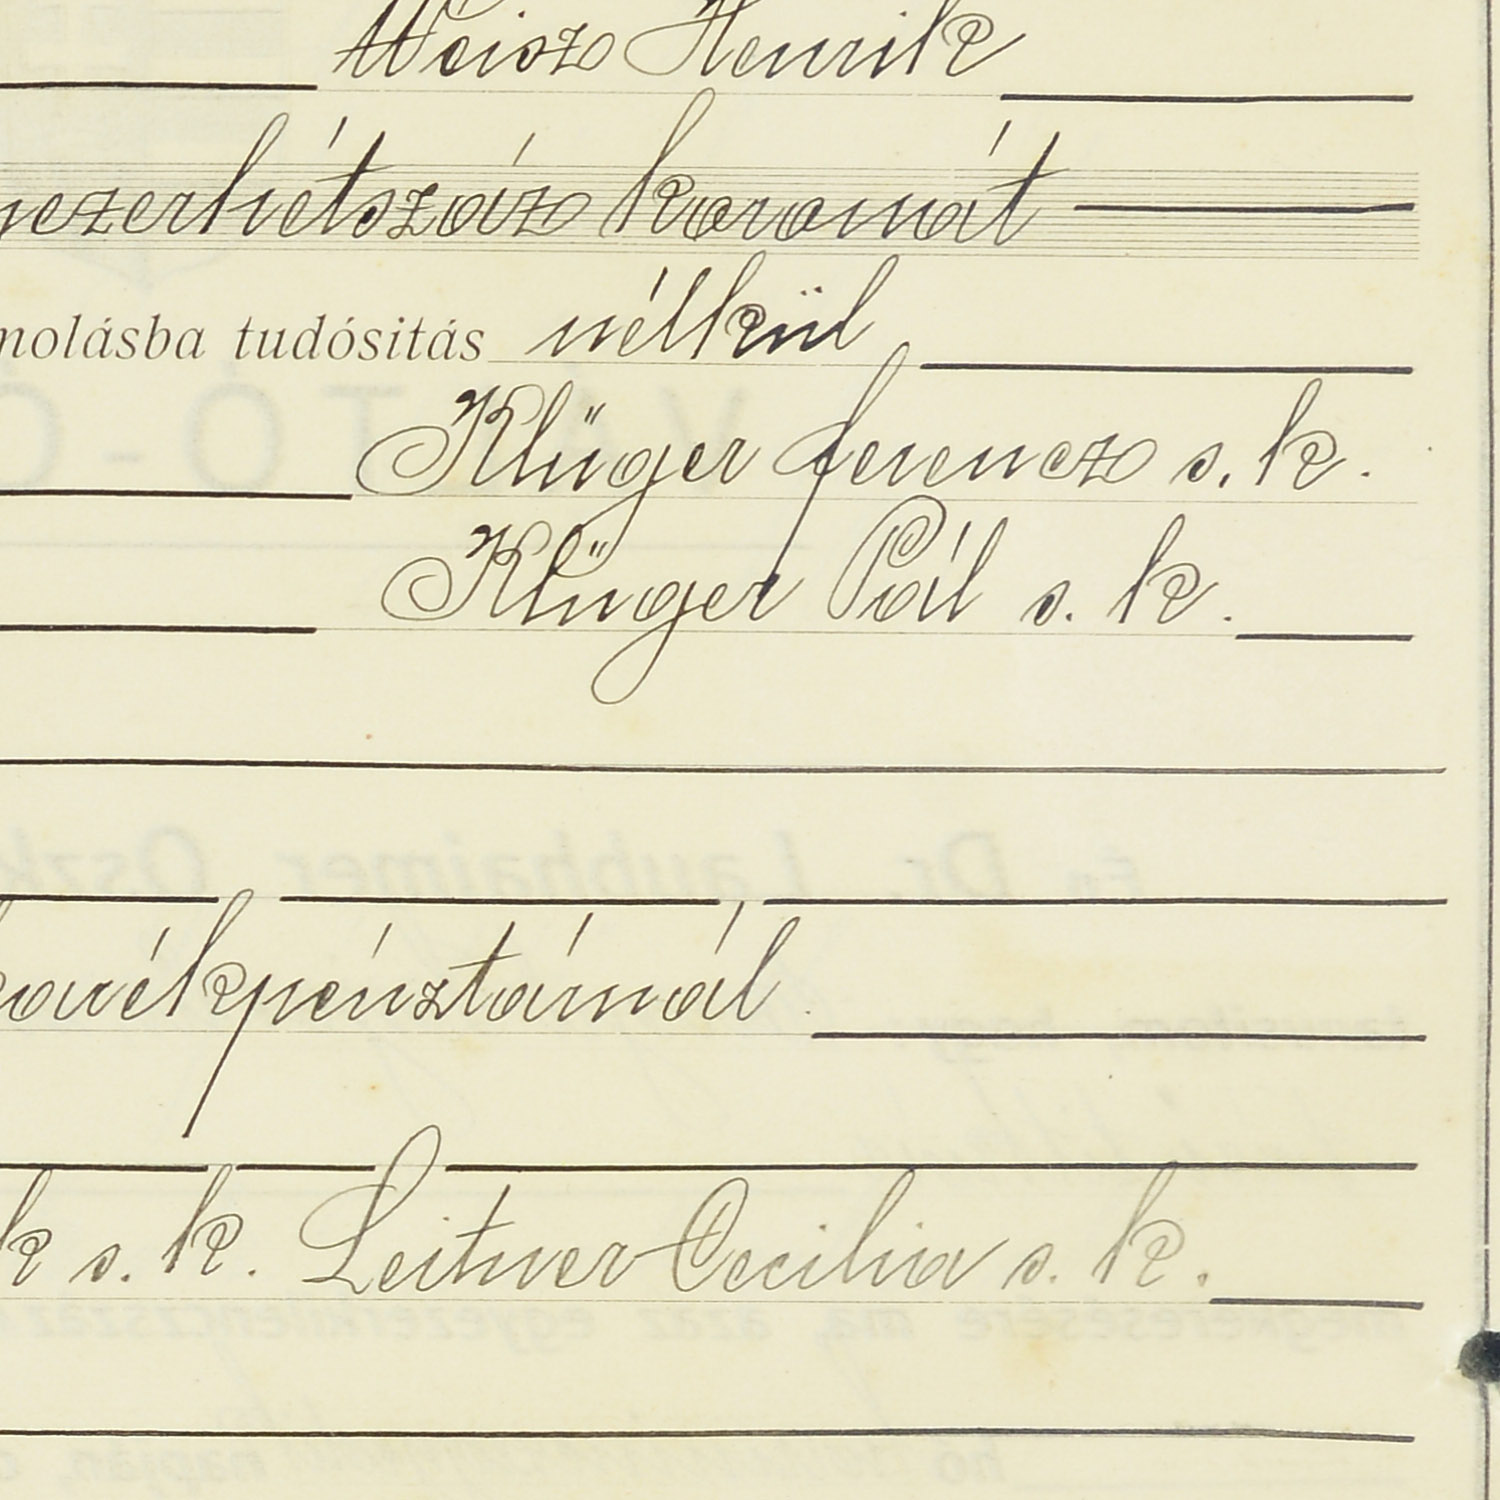 Weisz Henrik
yezerhétszáz koronát
molásba tudósitás nélkül
Klüger Ferencz s. k.
Klüger Pál s. k.
karékpénztárnál
k s. k. Leitner Cecilia s. k.